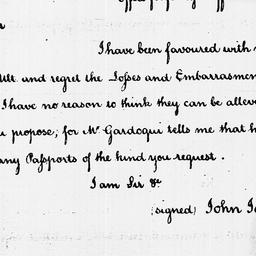 I have been favoured with
Ult. and regret the Losses and Embarrasmen
I have no reason to think they can be allev
u propose; for Mr Gardoqui tells me that h
any Passports of the kind you request.
I am Sir &c
(signed) John Ja